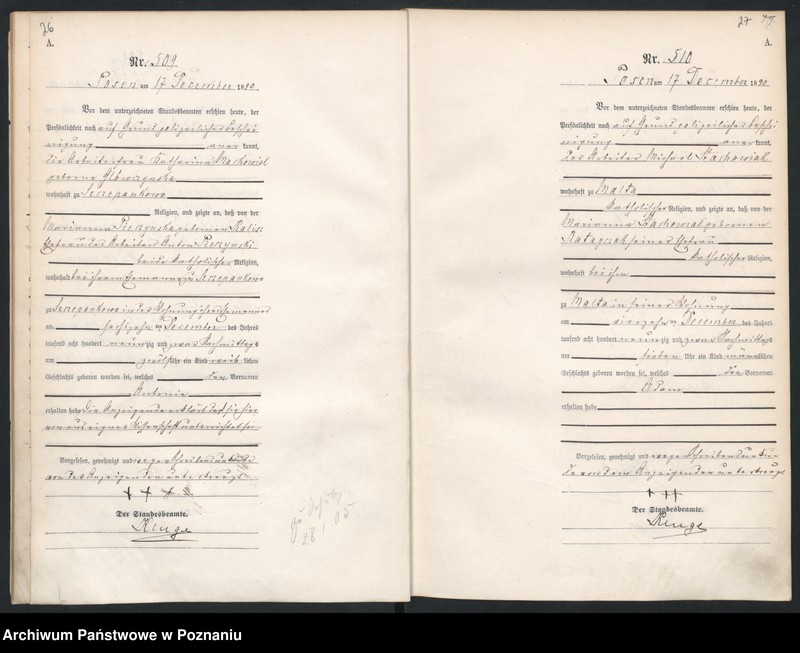 26
A.
Nr. 509
Posen am 17 December 1890
Vor dem unterzeichneten Standesbeamten erschien heute, der
Persönlichkeit nach auf Grund polizeilicher Beschei
nigung aner kannt,
die Arbeiterfrau Katharina Mackowiak
geborne
wohnhaft zu Szczepankowo
Religion, und zeigte an, daß von der
Marianna geborenen
Ehefrau des Arbeiter Anton
beide katholischer Religion,
wohnhaft bei ihrem Ehemanne zu Szczepankowo
zu Szczepankowo in der Wohnung ihres Ehemannes
am sechszehnten December des Jahres
tausend acht hundert neunzig und zwar Nachmittags
um zwölf Uhr ein Kind weiblichen
Geschlechts geboren worden sei, welches den Vornamen
Antonie
erhalten habe Die Anzeigende erklärt daß sie hier
von aus eigner Wissenschaft unterrichtet sei
Vorgelesen, genehmigt und wegen Schreibensunkunde
von der Anzeigenden unterkreuzt
+ + +
Der Standesbeamte.
27
A.
Nr. 510
Posen am 17 December 1890
Vor dem unterzeichneten Standesbeamten erschien heute, der
Persönlichkeit nach auf Grund polizeilicher Beschei
nigung aner kannt,
der Arbeiter Michael Stachowiak
wohnhaft zu Malta
katholischer Religion, und zeigte an, daß von der
Marianna Stachowiak geborenen
Ratajczak seiner Ehefrau
katholischer Religion,
wohnhaft bei ihm
zu Malta in seiner Wohnung
am vierzehnten December des Jahres
tausend acht hundert neunzig und zwar Nachmittags
um sieben Uhr ein Kind männlichen
Geschlechts geboren worden sei, welches den Vornamen
Adam
erhalten habe
Vorgelesen, genehmigt und wegen Schreibensunkun
de von dem Anzeigenden unterkreuzt
+ + +
Der Standesbeamte.
Archiwum Państwowe w Poznaniu